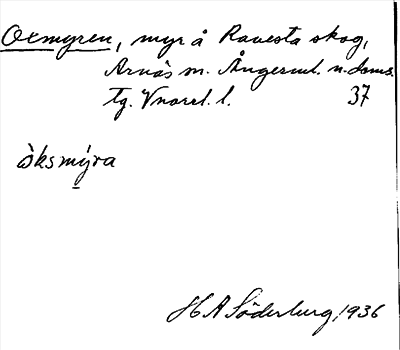 Oxmyren, myr å Ravesta skog,
Arnäs sn. Ångerml. n. doms.
tg. Vnorrl. l. 37
ò̀ksmýra
H A Söderberg, 1936